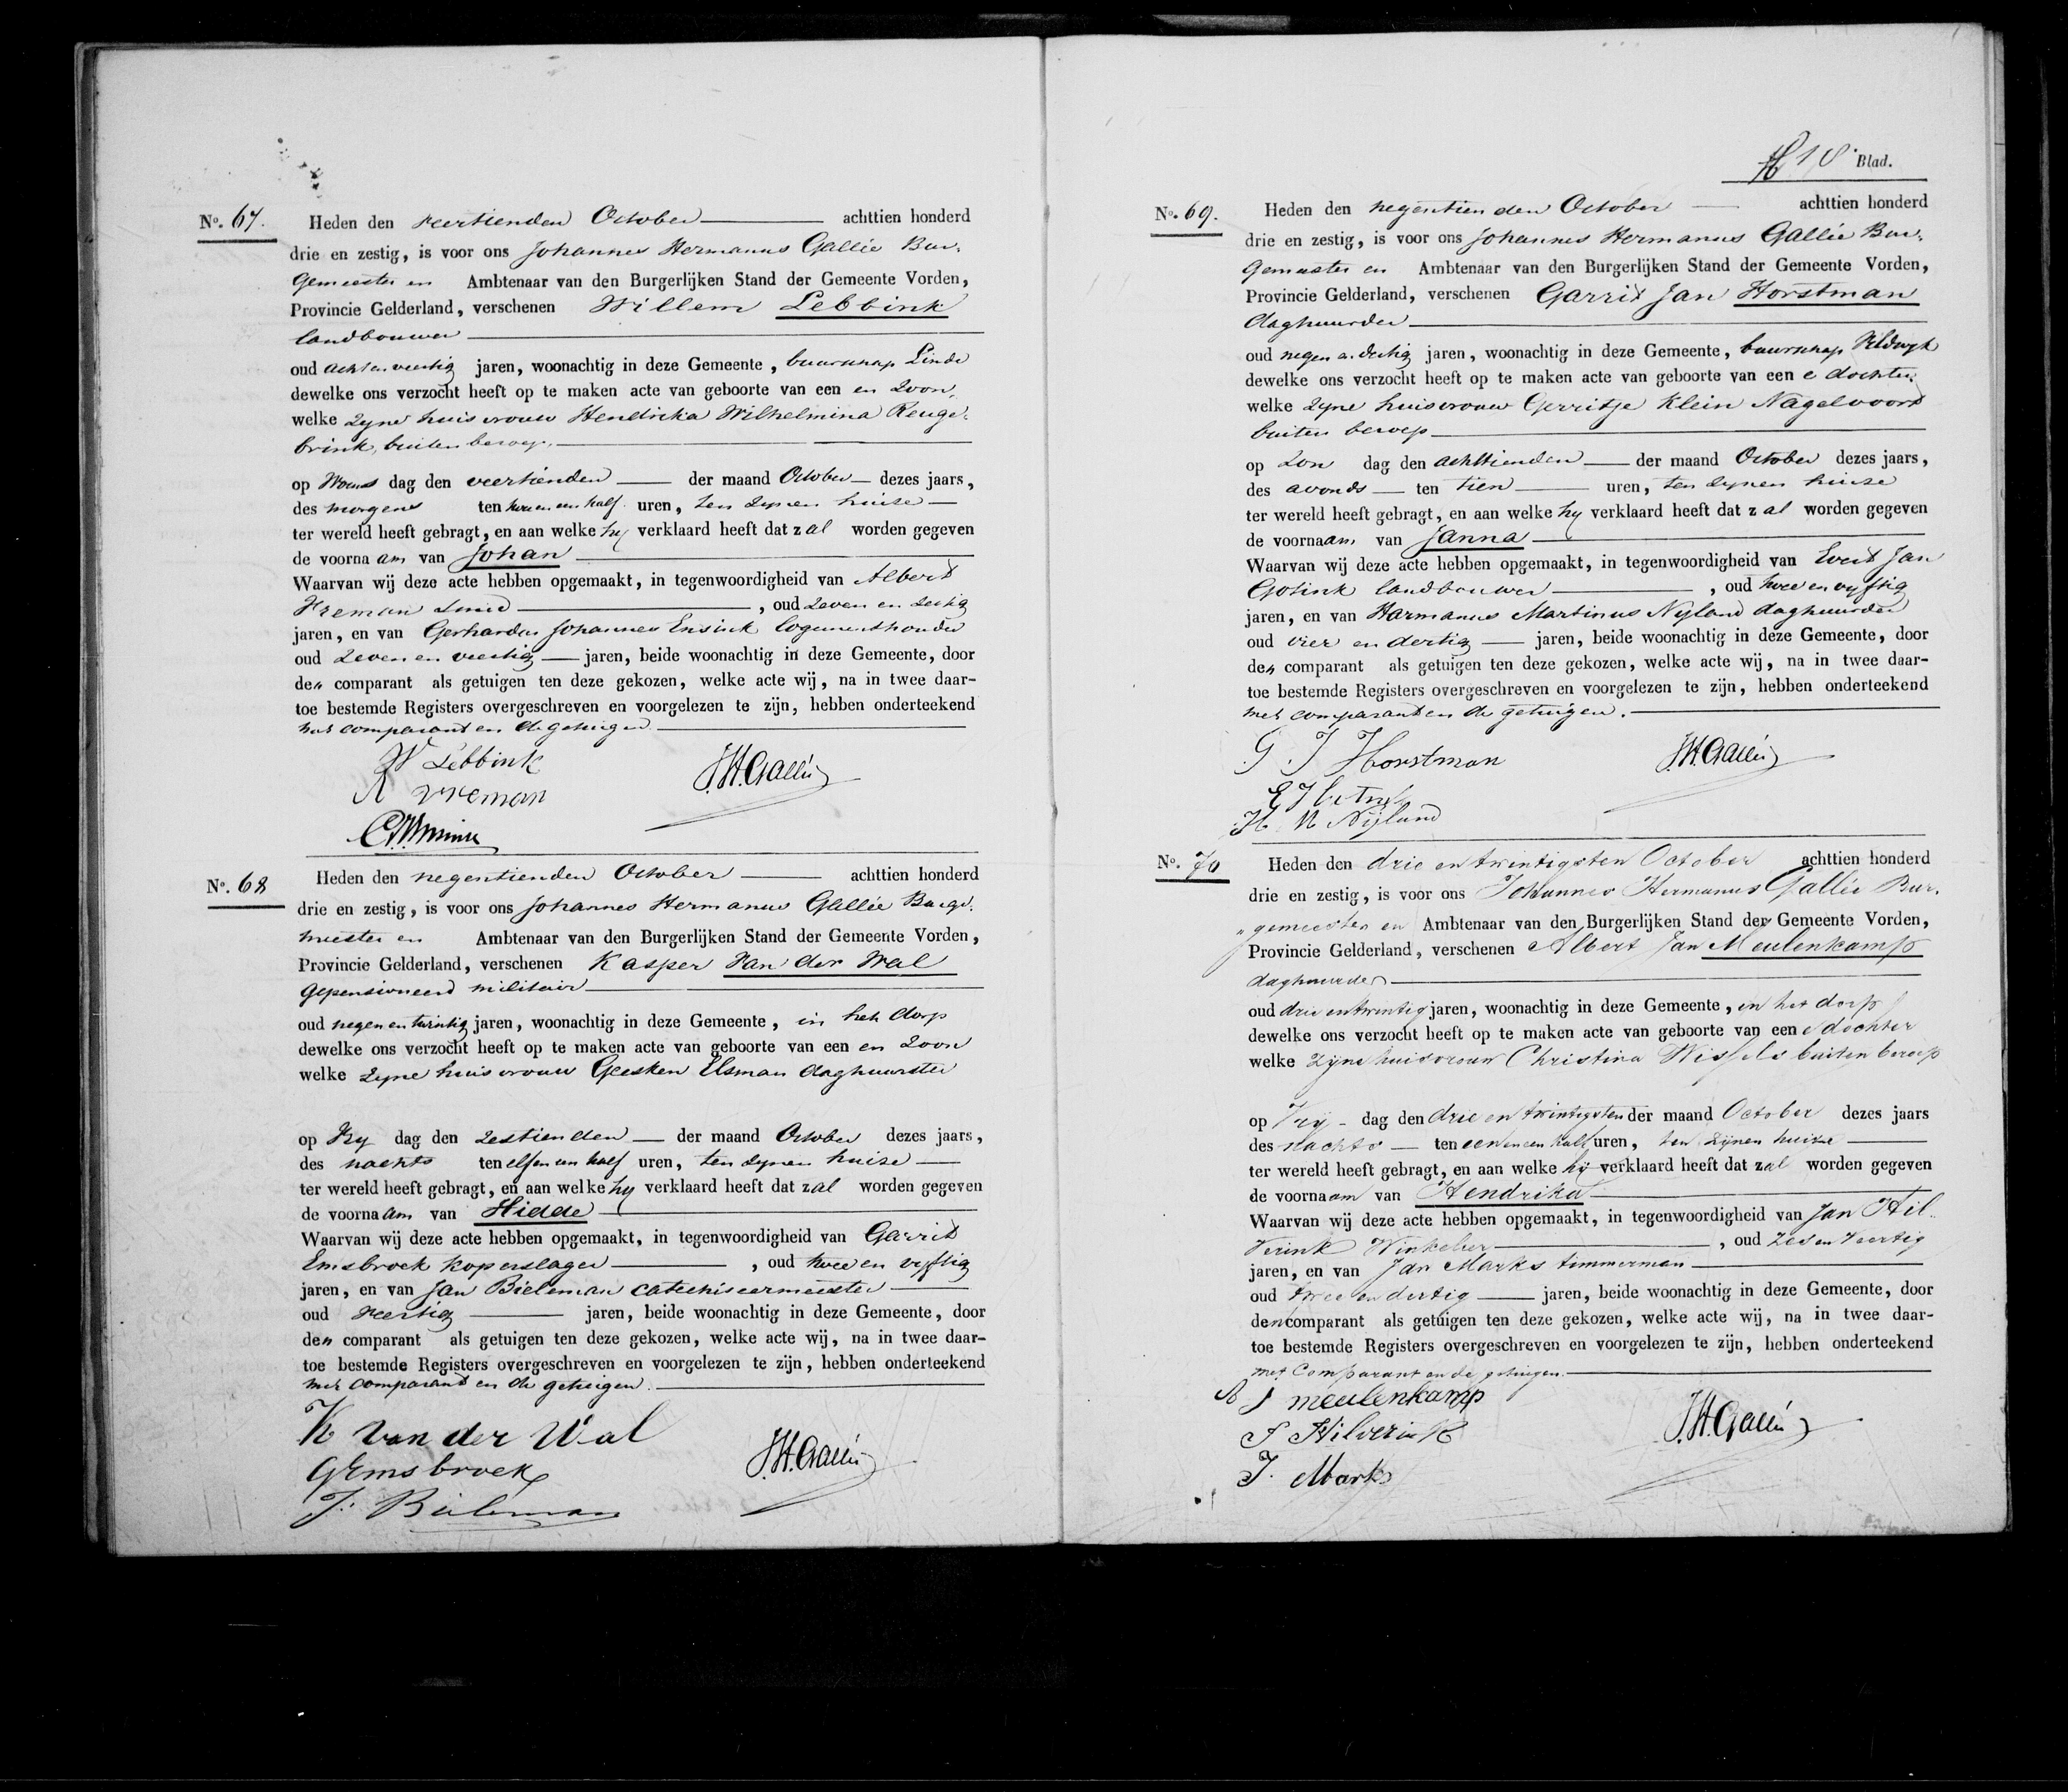 No. 67.
Heden den veertienden October achttien honderd
drie en zestig, is voor ons Johannes Hermanus Gallée Bur-
gemeester en Ambtenaar van den Burgerlijken Stand der Gemeente Vorden,
Provincie Gelderland, verschenen Willem Lebbink
landbouwer
oud acht en veertig jaren, woonachtig in deze Gemeente, buurschap Linde
dewelke ons verzocht heeft op te maken acte van geboorte van een en zoon,
welke zyne huisvrouw Hendrika Wilhelmina Reuge-
brink, buiten beroep,
op Woens dag den veertienden der maand October dezes jaars,
des morgens ten een half uren, ten zynen huize
ter wereld heeft gebragt, en aan welke hy verklaard heeft dat zal worden gegeven
de voornaam van Johan
Waarvan wij deze acte hebben opgemaakt, in tegenwoordigheid van Albert
Vreman smid, oud zeven en
jaren, en van Gerhardus Johannes Ensink logementhouder
oud zeven en veertig jaren, beide woonachtig in deze Gemeente, door
den comparant als getuigen ten deze gekozen, welke acte wij, na in twee daar-
toe bestemde Registers overgeschreven en voorgelezen te zijn, hebben onderteekend
met comparant en de getuigen.
W Lebbink
J.H. Gallée
A vreman
No. 68
Heden den negentienden October achttien honderd
drie en zestig, is voor ons Johannes Hermanus Gallée Burge-
meester en Ambtenaar van den Burgerlijken Stand der Gemeente Vorden,
Provincie Gelderland, verschenen Kasper Van der Wal
gepensioneerd militair
oud negen en twintig jaren, woonachtig in deze Gemeente, in het dorp
dewelke ons verzocht heeft op te maken acte van geboorte van een en zoon
welke zyne huisvrouw Geesken Elsman daghuurster
op Vry dag den zestienden der maand October dezes jaars,
des nachts ten elf en een half uren, ten zynen huize
ter wereld heeft gebragt, en aan welke hy verklaard heeft dat zal worden gegeven
de voornaam van Hidde
Waarvan wij deze acte hebben opgemaakt, in tegenwoordigheid van Garrit
Emsbroek koperslager, oud twee en vyftig
jaren, en van Jan Bieleman catechiseermeester
oud veertig jaren, beide woonachtig in deze Gemeente, door
den comparant als getuigen ten deze gekozen, welke acte wij, na in twee daar-
toe bestemde Registers overgeschreven en voorgelezen te zijn, hebben onderteekend
met comparant en de getuigen.
K van der Wal
J.H. Gallée
G Emsbroek
J. Bieleman
18e Blad.
No. 69.
Heden den negentienden October achttien honderd
drie en zestig, is voor ons Johannes Hermanus Gallée Bur-
gemeester en Ambtenaar van den Burgerlijken Stand der Gemeente Vorden,
Provincie Gelderland, verschenen Garrit Jan Horstman
daghuurder
oud negen en dertig jaren, woonachtig in deze Gemeente, buurschap Veldwyk
dewelke ons verzocht heeft op te maken acte van geboorte van een e dochter
welke zyne huisvrouw Gerritje Klein Nagelvoort
buiten beroep
op Zon dag den achttienden der maand October dezes jaars,
des avonds ten tien uren, ten zynen huize
ter wereld heeft gebragt, en aan welke hy verklaard heeft dat zal worden gegeven
de voornaam van Janna
Waarvan wij deze acte hebben opgemaakt, in tegenwoordigheid van Evert Jan
Gotink landbouwer, oud twee en vyftig
jaren, en van Harmanus Martinus Nyland daghuurder
oud vier en dertig jaren, beide woonachtig in deze Gemeente, door
den comparant als getuigen ten deze gekozen, welke acte wij, na in twee daar-
toe bestemde Registers overgeschreven en voorgelezen te zijn, hebben onderteekend
met comparant en de getuigen.
G J Horstman
J.H. Gallée
H M Nijland
No. 70
Heden den drie en twintigsten October achttien honderd
drie en zestig, is voor ons Johannes Hermanus Gallée Bur-
gemeester en Ambtenaar van den Burgerlijken Stand der Gemeente Vorden,
Provincie Gelderland, verschenen Albert Jan Meulenkamp
daghuurder
oud drie en twintig jaren, woonachtig in deze Gemeente, in het dorp
dewelke ons verzocht heeft op te maken acte van geboorte van een e dochter
welke zijne huisvrouw Christina Wissels buiten beroep
op Vrij dag den drie en twintigsten der maand October dezes jaars
des nachts ten een en een half uren, ten zijnen huize
ter wereld heeft gebragt, en aan welke hij verklaard heeft dat zal worden gegeven
de voornaam van Hendrika
Waarvan wij deze acte hebben opgemaakt, in tegenwoordigheid van Jan Hil-
verink Winkelier, oud zes en veertig
jaren, en van Jan Marks timmerman
oud twee en dertig jaren, beide woonachtig in deze Gemeente, door
den comparant als getuigen ten deze gekozen, welke acte wij, na in twee daar-
toe bestemde Registers overgeschreven en voorgelezen te zijn, hebben onderteekend
met Comparant en de getuigen.
A J meulenkamp
J.H. Gallée
J Hilverink
J. Marks